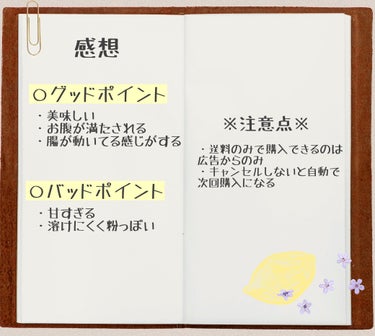 感想
○グッドポイント
・美味しい
・お腹が満たされる
・腸が動いてる感じがする
○バッドポイント
・甘すぎる
・溶けにくく粉っぽい
※注意点※
・送料のみで購入できるのは
広告からのみ
・キャンセルしないと自動で
次回購入になる